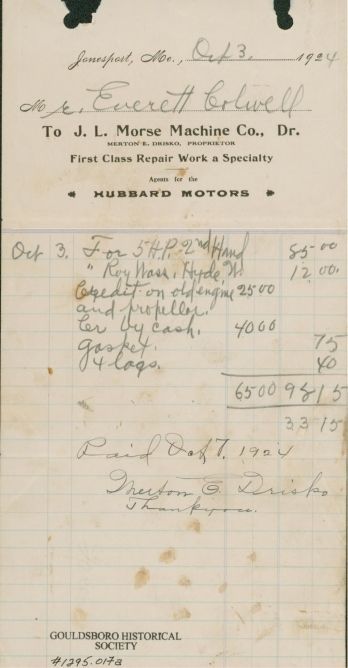 Jonesport, Me., Oct 3. 1924
Mr. Everett Colwell
To J. L. Morse Machine Co., Dr.
MERTON E. DRISKO, PROPRIETOR
First Class Repair Work a Specialty
Agents for the
HUBBARD MOTORS
Oct 3. For 5 H.P. 2nd Hand 85 00
" Roy Wass, Hyde, W. 12 00.
Credit on old engine 25 00
and propellor.
Cr by cash. 40 00
gasket. 75
4 lags. 40
65 00 98 15
33 15
Paid Oct 7. 1924
Merton E. Drisko
Thank you.
GOULDSBORO HISTORICAL
SOCIETY
#1295.017a